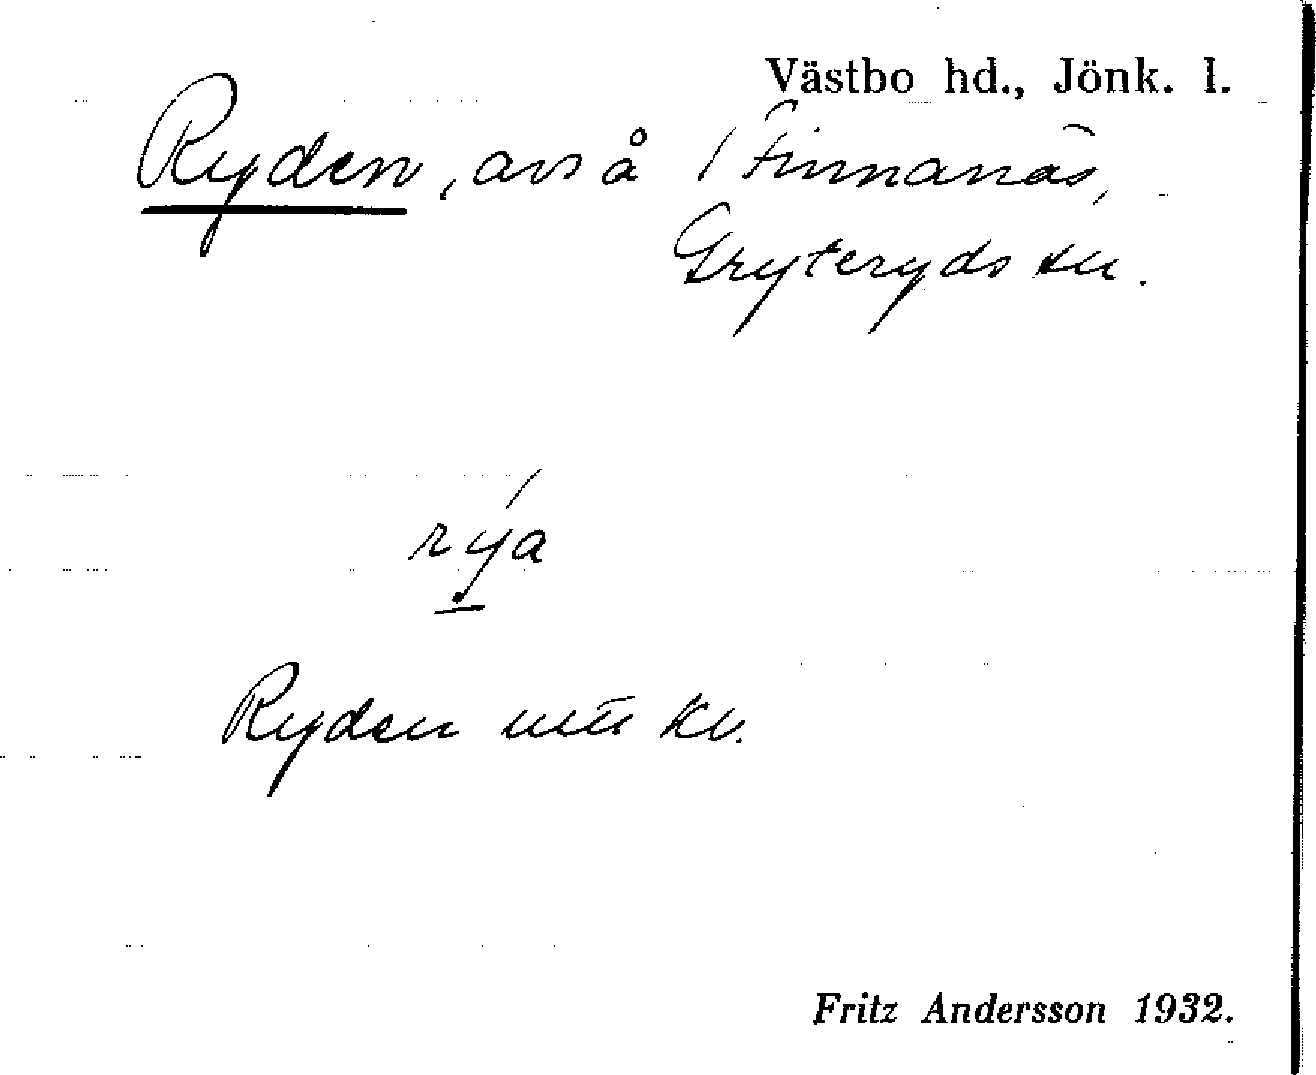 Västbo hd., Jönk. l.
Ryden, avs å 1 Finnanäs,
Gryteryds sn.
rýa
Ryden kv.
Fritz Andersson 1932.